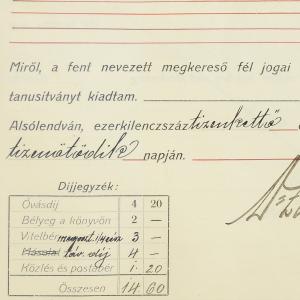 Miről, a fent nevezett megkereső fél jogai
tanusitványt kiadtam.
Alsólendván, ezerkilenczszáztizenkettő
tizenötödik napján.
Díjjegyzék:
Óvásdíj 4 20
Bélyeg a könyvön 2 —
Vitelbér 3 —
Másolat táv. díj 4 —
Közlés és postabér 1. 20
Összesen 14 60